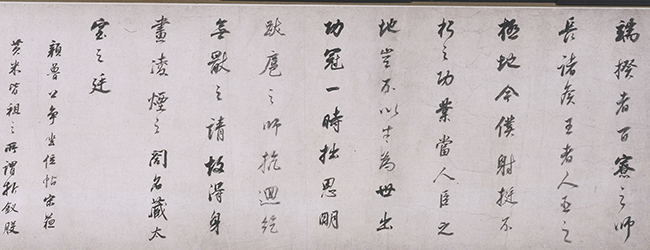 端揆者百寮之師
長諸矦王者人臣之
極地今僕射挺不
朽之功業當人臣之
地豈不以才為世出
功冠一時挫思明
跋扈之師抗迴紇
無厭之請故得身
畫凌煙之閣名藏太
室之廷
顏魯公爭坐位帖宋蘇
黃米皆祖之所謂折釵股